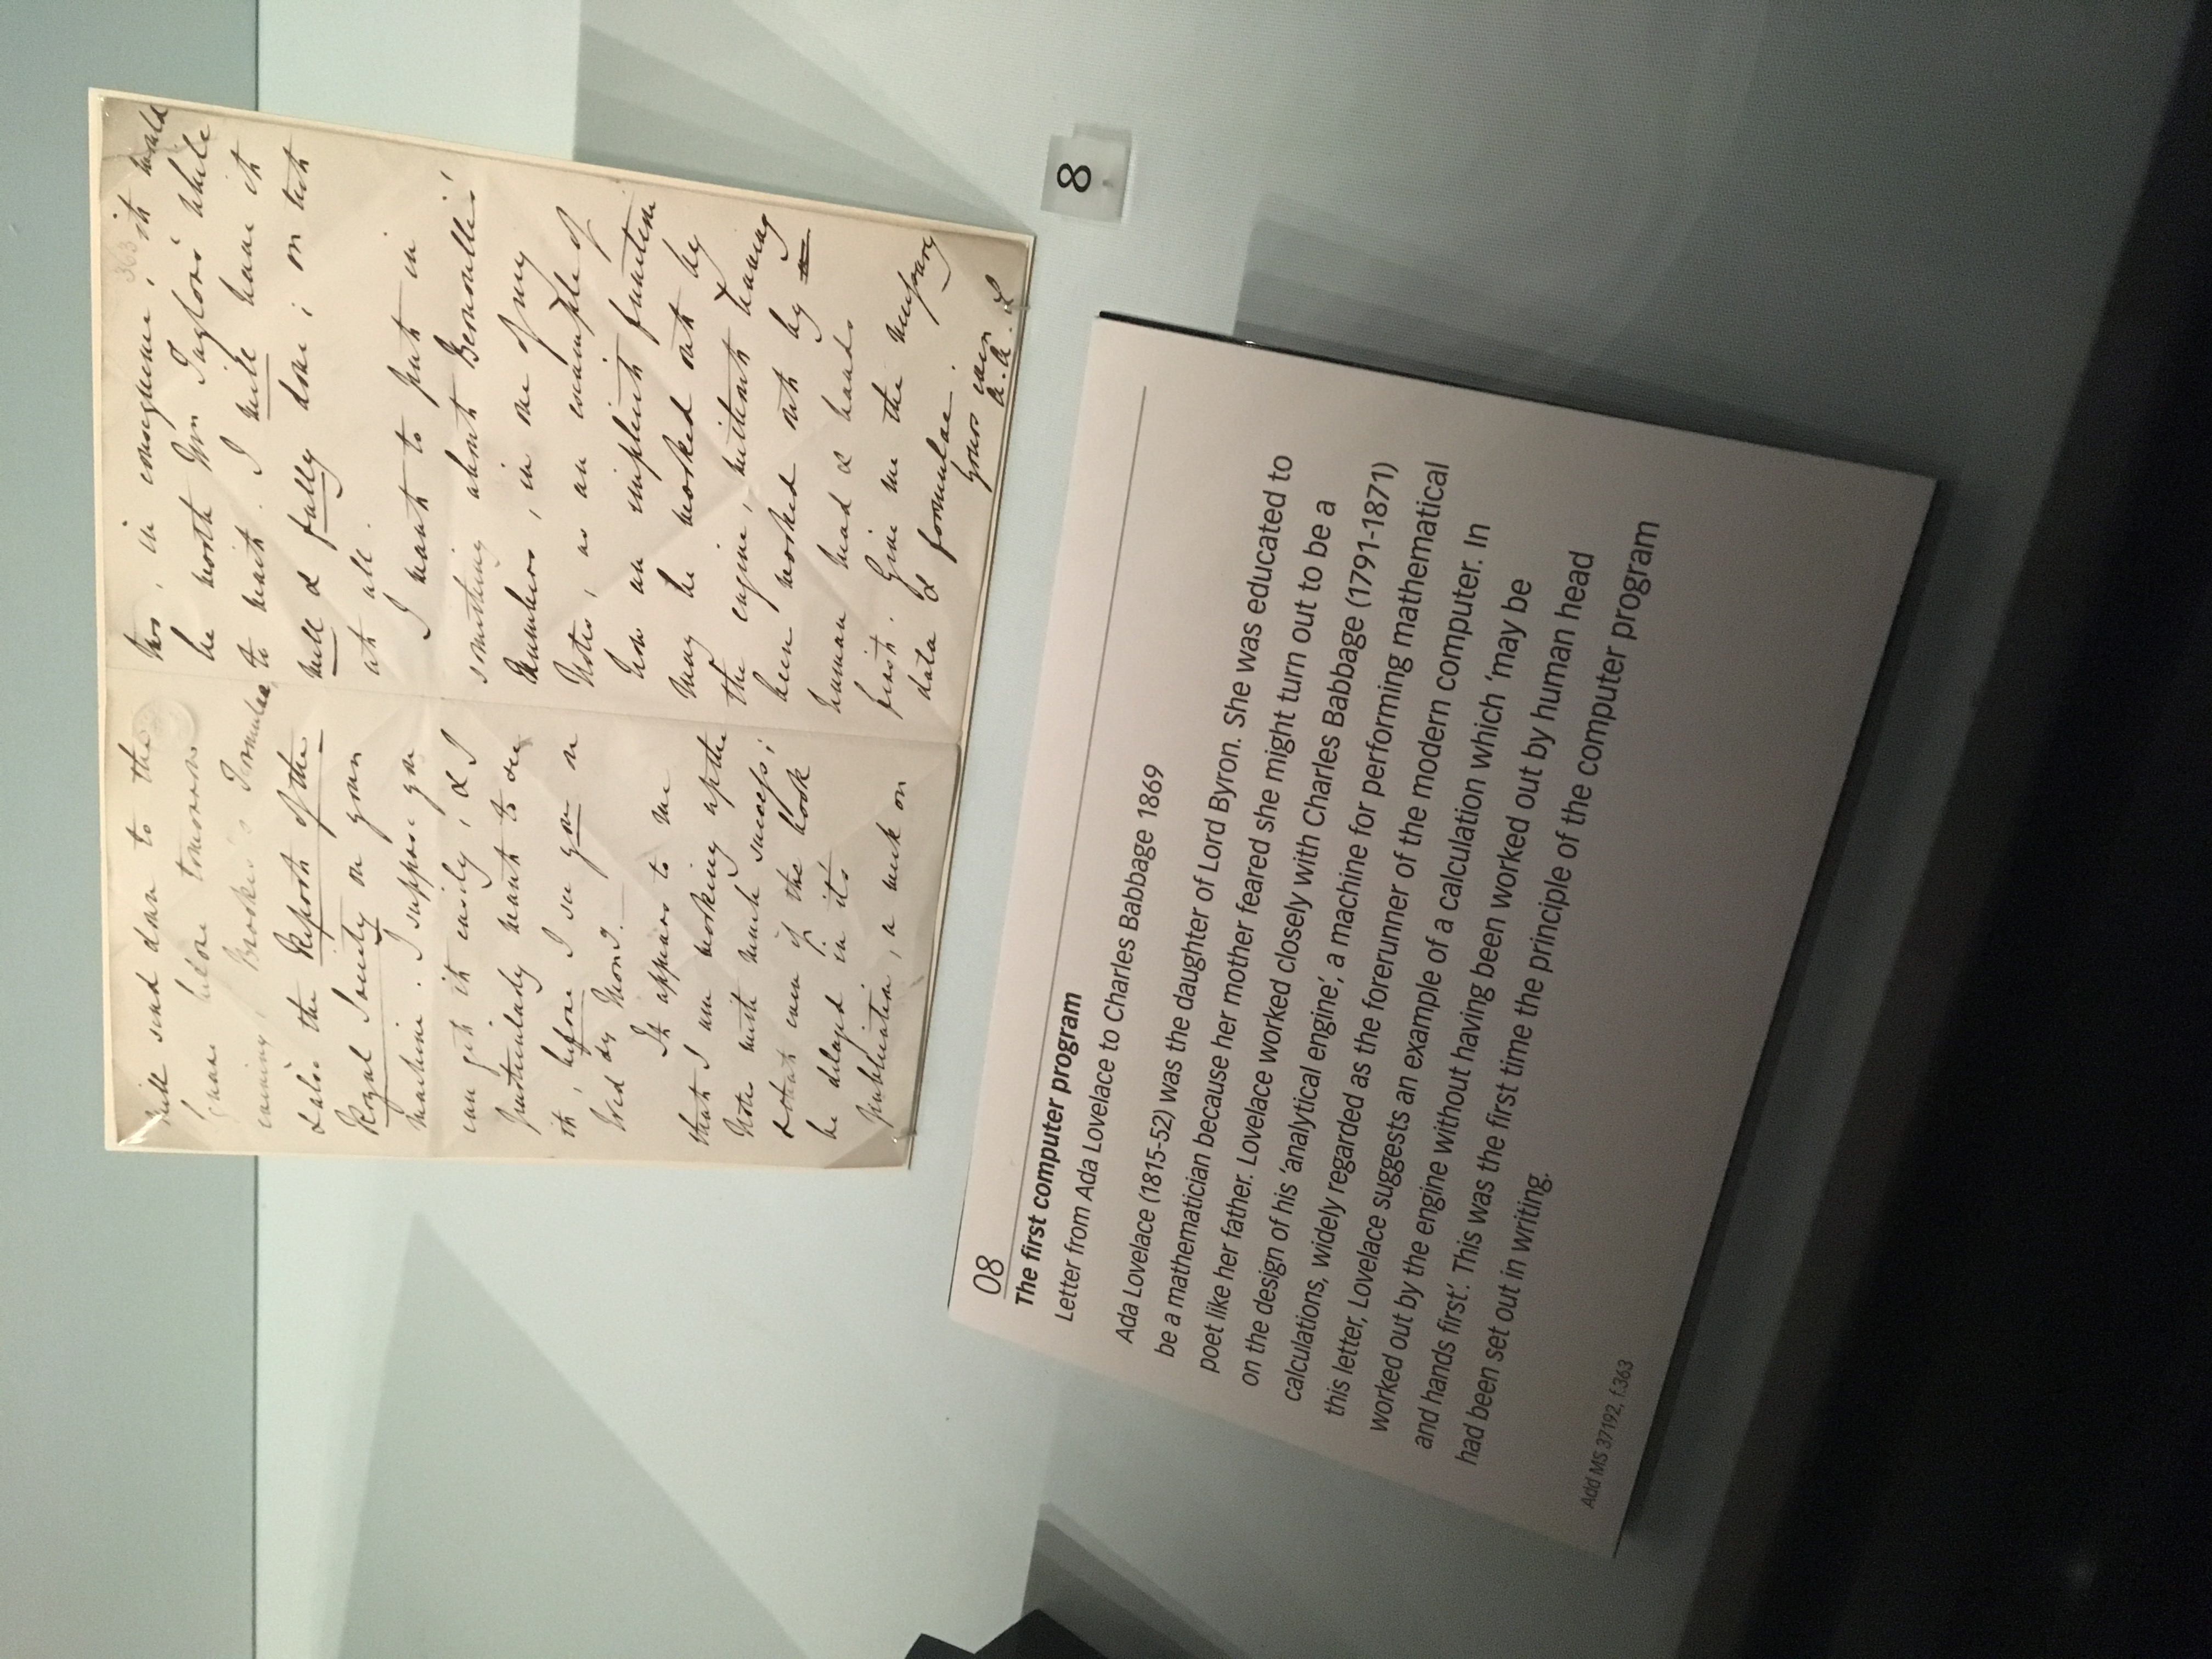 will send down to the
before tomorrow
evening, Brooke's Formulae,
& also the Report of the
Royal Society on your
machine. I suppose you
can get it easily, & I
particularly want to see
it, before I see you on
Wed dy Morng.
It appears to me
that I am working up the
Notes with much success;
& that even if the book
be delayed in it's
publication, a week or
two, in consequence, it would
be worth Mr Taylor's while
to wait. I will have it
well & fully done; or not
at all.
I want to put in
something about Bernoulli's
Numbers, in one of my
Notes, as an example of
how an implicit function
may be worked out by
the engine, without having
been worked out by
human head & hands
first. Give me the necessary
data & formulae.
Yours ever
A. A. L
363
8
08
The first computer program
Letter from Ada Lovelace to Charles Babbage 1869
Ada Lovelace (1815-52) was the daughter of Lord Byron. She was educated to
be a mathematician because her mother feared she might turn out to be a
poet like her father. Lovelace worked closely with Charles Babbage (1791-1871)
on the design of his ‘analytical engine’, a machine for performing mathematical
calculations, widely regarded as the forerunner of the modern computer. In
this letter, Lovelace suggests an example of a calculation which ‘may be
worked out by the engine without having been worked out by human head
and hands first’. This was the first time the principle of the computer program
had been set out in writing.
Add MS 37192, f.363